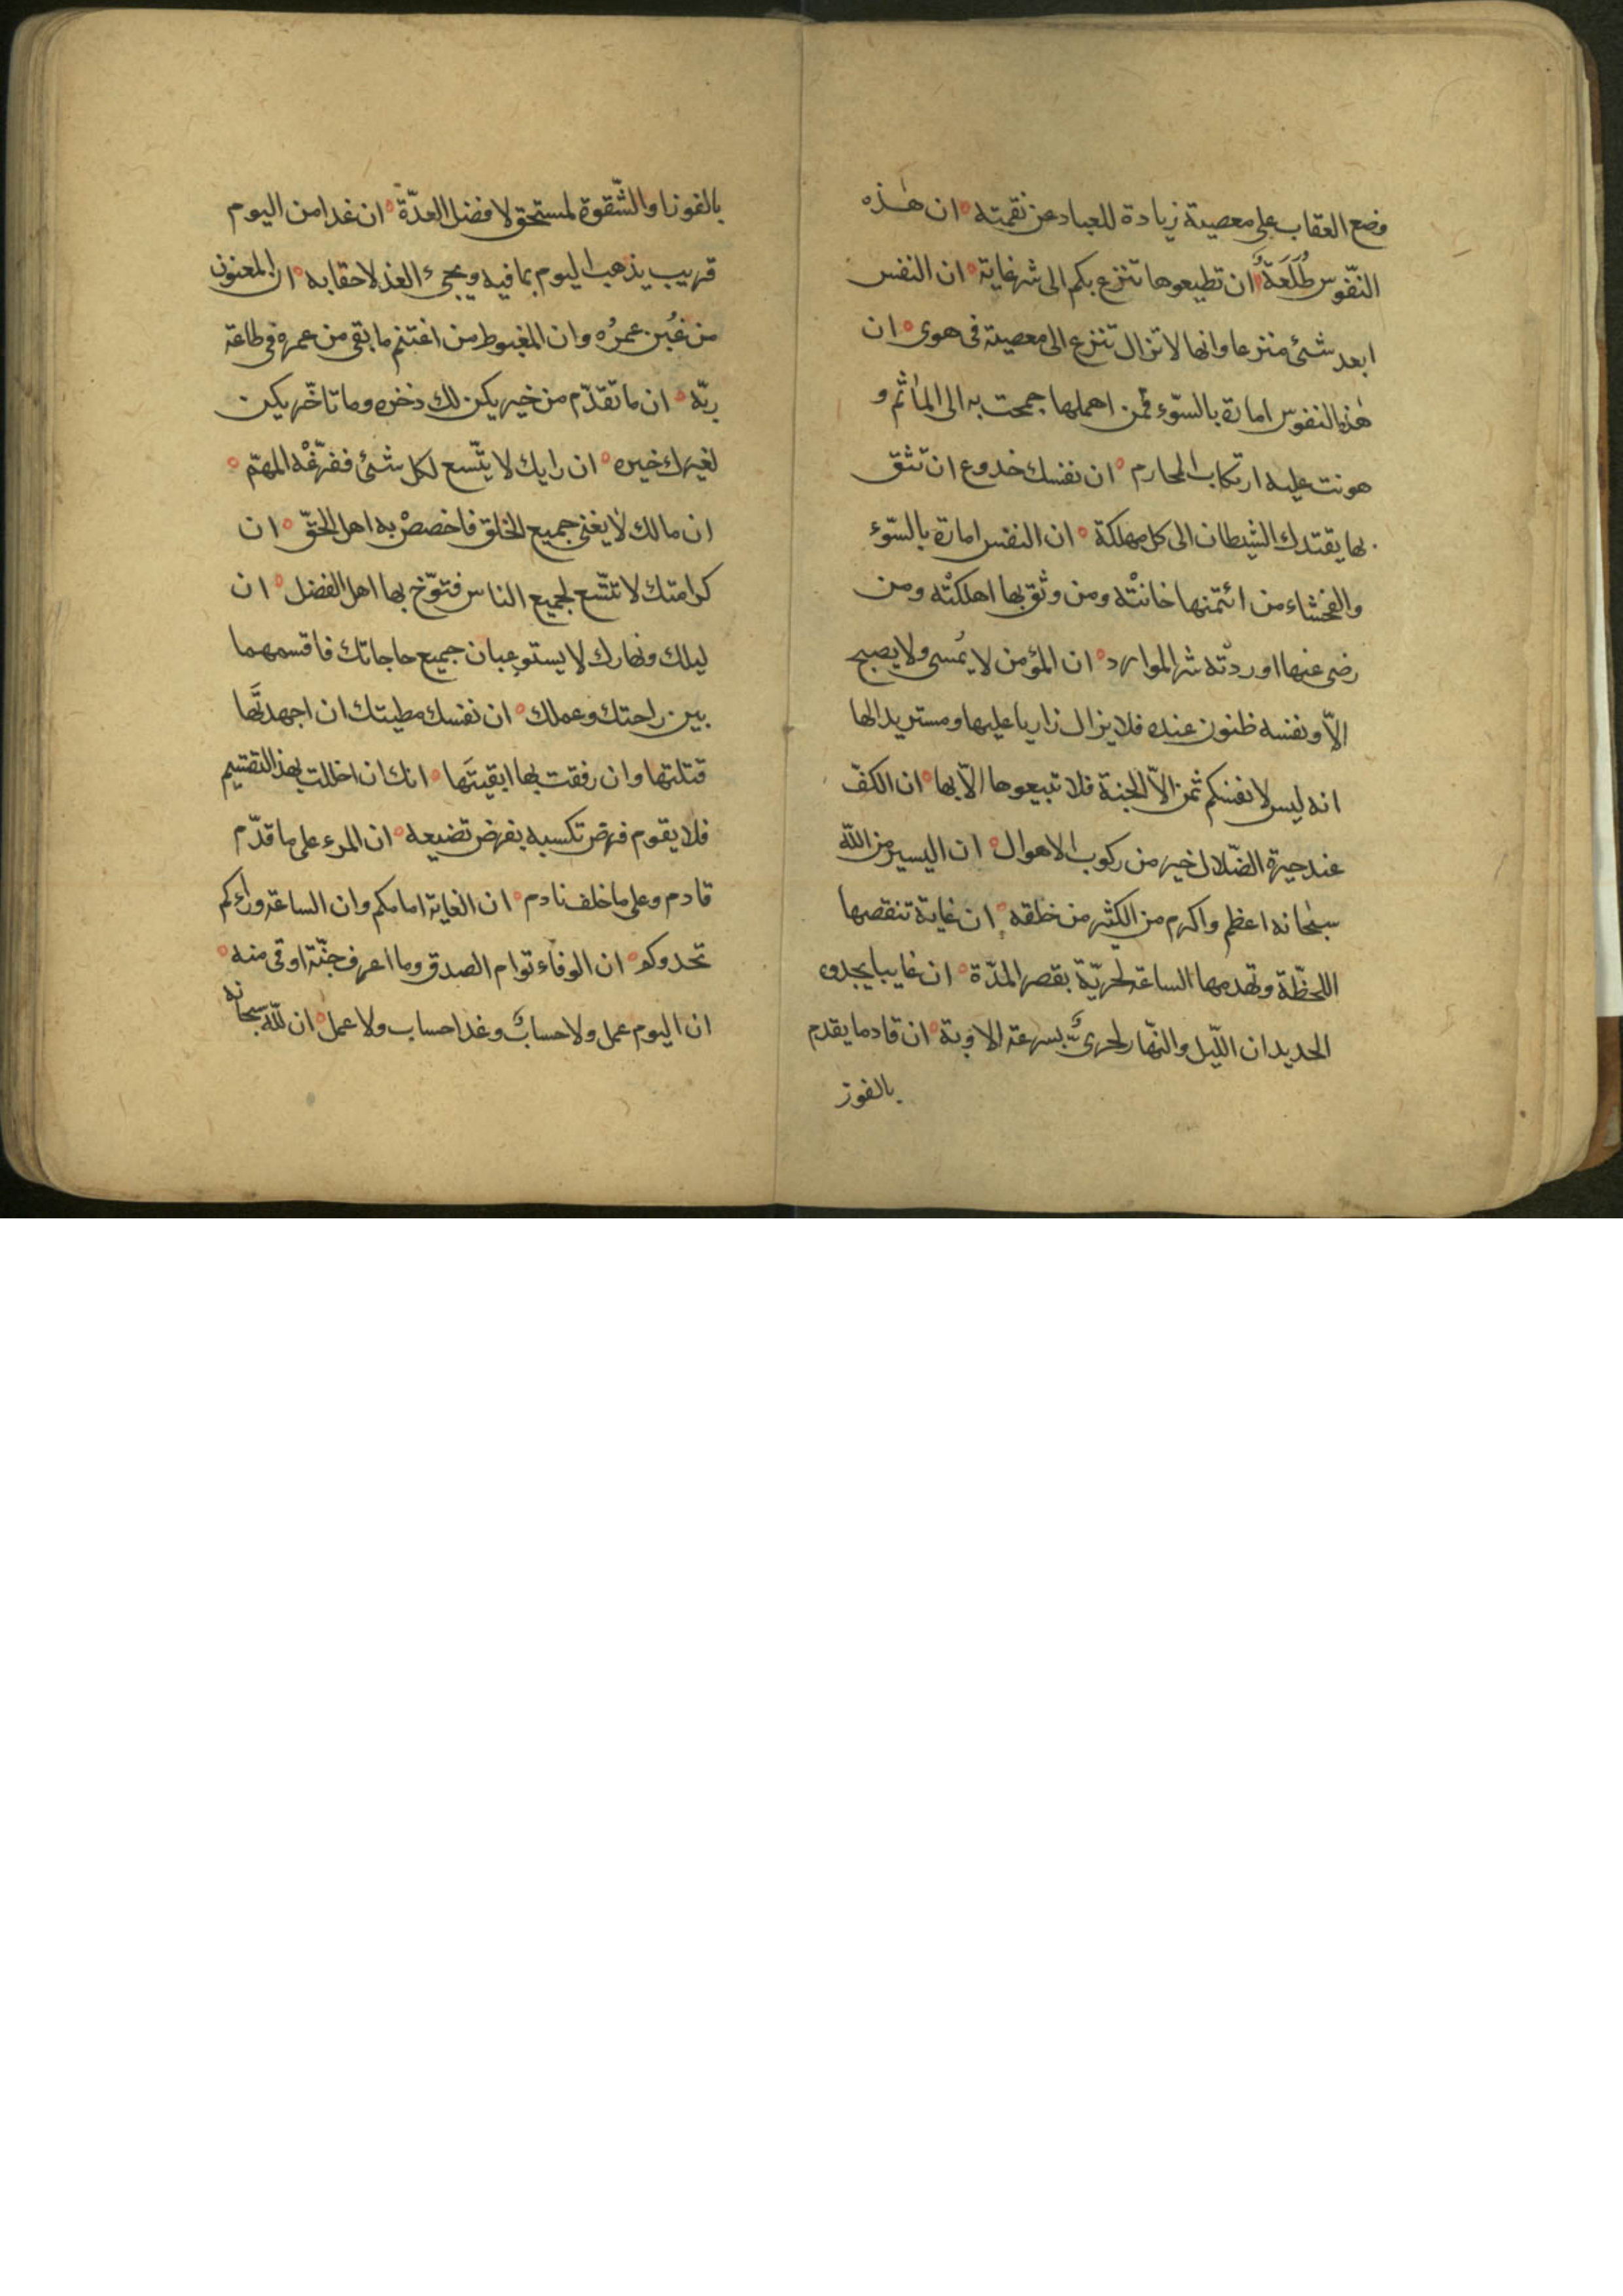 وضع العقاب على معصيته زيادة للعباد عن نقمته ه ان هٰذه
النّفوس طُلَعَةٌ ان تطيعوها تنزع بكم الى شر غاية ه ان النفس
ابعد شئ منزعا وانها لا تزال تنزع الى معصية فى هوى ه ان
هٰذه النفوس امارة بالسّوء فمن اهملها جمحت به الى المآثم و
هونت عليه ارتكاب المحارم ه ان نفسك خدوع ان تثق
بها يقتدك الشيطان الى كل مهلكة ه ان النفس امارة بالسّوء
والفحشاء من ائتمنها خانتْه ومن وثق بها اهلكتْه ومن
رضى عنها اوردتْه شر الموارد ه ان المؤمن لا يُمسى ولا يصبح
الاّ ونفسه ظنون عنده فلا يزال زاريا عليها ومستزيدا لها
انه ليس لانفسكم ثمن الاّ الجنة فلا تبيعوها الاّ بها ه ان الكفّ
عند حيرة الضّلال خير من ركوب الاهوال ه ان اليسير من اللّه
سبحانه اعظم واكرم من الكثير من خلقه ه ان غاية تنقصها
اللحظّة وتهدمها الساعة لحريّة بقصر المدّة ه ان غايبا يجدوه
الجديدان اللّيل والنّهار لحرىٌّ بسرعة الاوبة ه ان قادما يقدم
بالفوز
بالفوز او الشّقوة لمستحق لافضل العدّة ه ان غدا من اليوم
قريب يذهب اليوم بما فيه ويجىء الغد لاحقا به ه ان المغبون
من غُبِن عمرُه وان المغبوط من اغتنم ما بقى من عمره فى طاعة
ربّه ه ان ما تقدّم من خير يكن لك ذخره وما تاخّر يكن
لغيرك خيره ه ان رايك لا يتّسع لكل شئ ففرّغْه المهمّ ه
ان مالك لا يغنى جميع الخلق فاخصصْ به اهل الحقّ ه ان
كرامتك لا تتّسع لجميع الناس فتوّخ بها اهل الفضل ه ان
ليلك ونهارك لا يستوعبان جميع حاجاتك فاقسمهما
بين راحتك وعملك ه ان نفسك مطيتك ان اجهدتَها
قتلتها وان رفقت بها ابقيتَها ه انك ان اخللت بهذا التقسيم
فلا يقوم فرض تكسبه بفرض تضيعه ه ان المرء على ما قدّم
قادم وعلى ما خلف نادم ه ان الغاية امامكم وان الساعة ورائكم
تحدوكم ه ان الوفاء توام الصدق وما اعرف جنّة اوقى منه ه
ان اليوم عمل ولا حسابٌ وغدا حساب ولا عمل ه ان للّه سبحانه